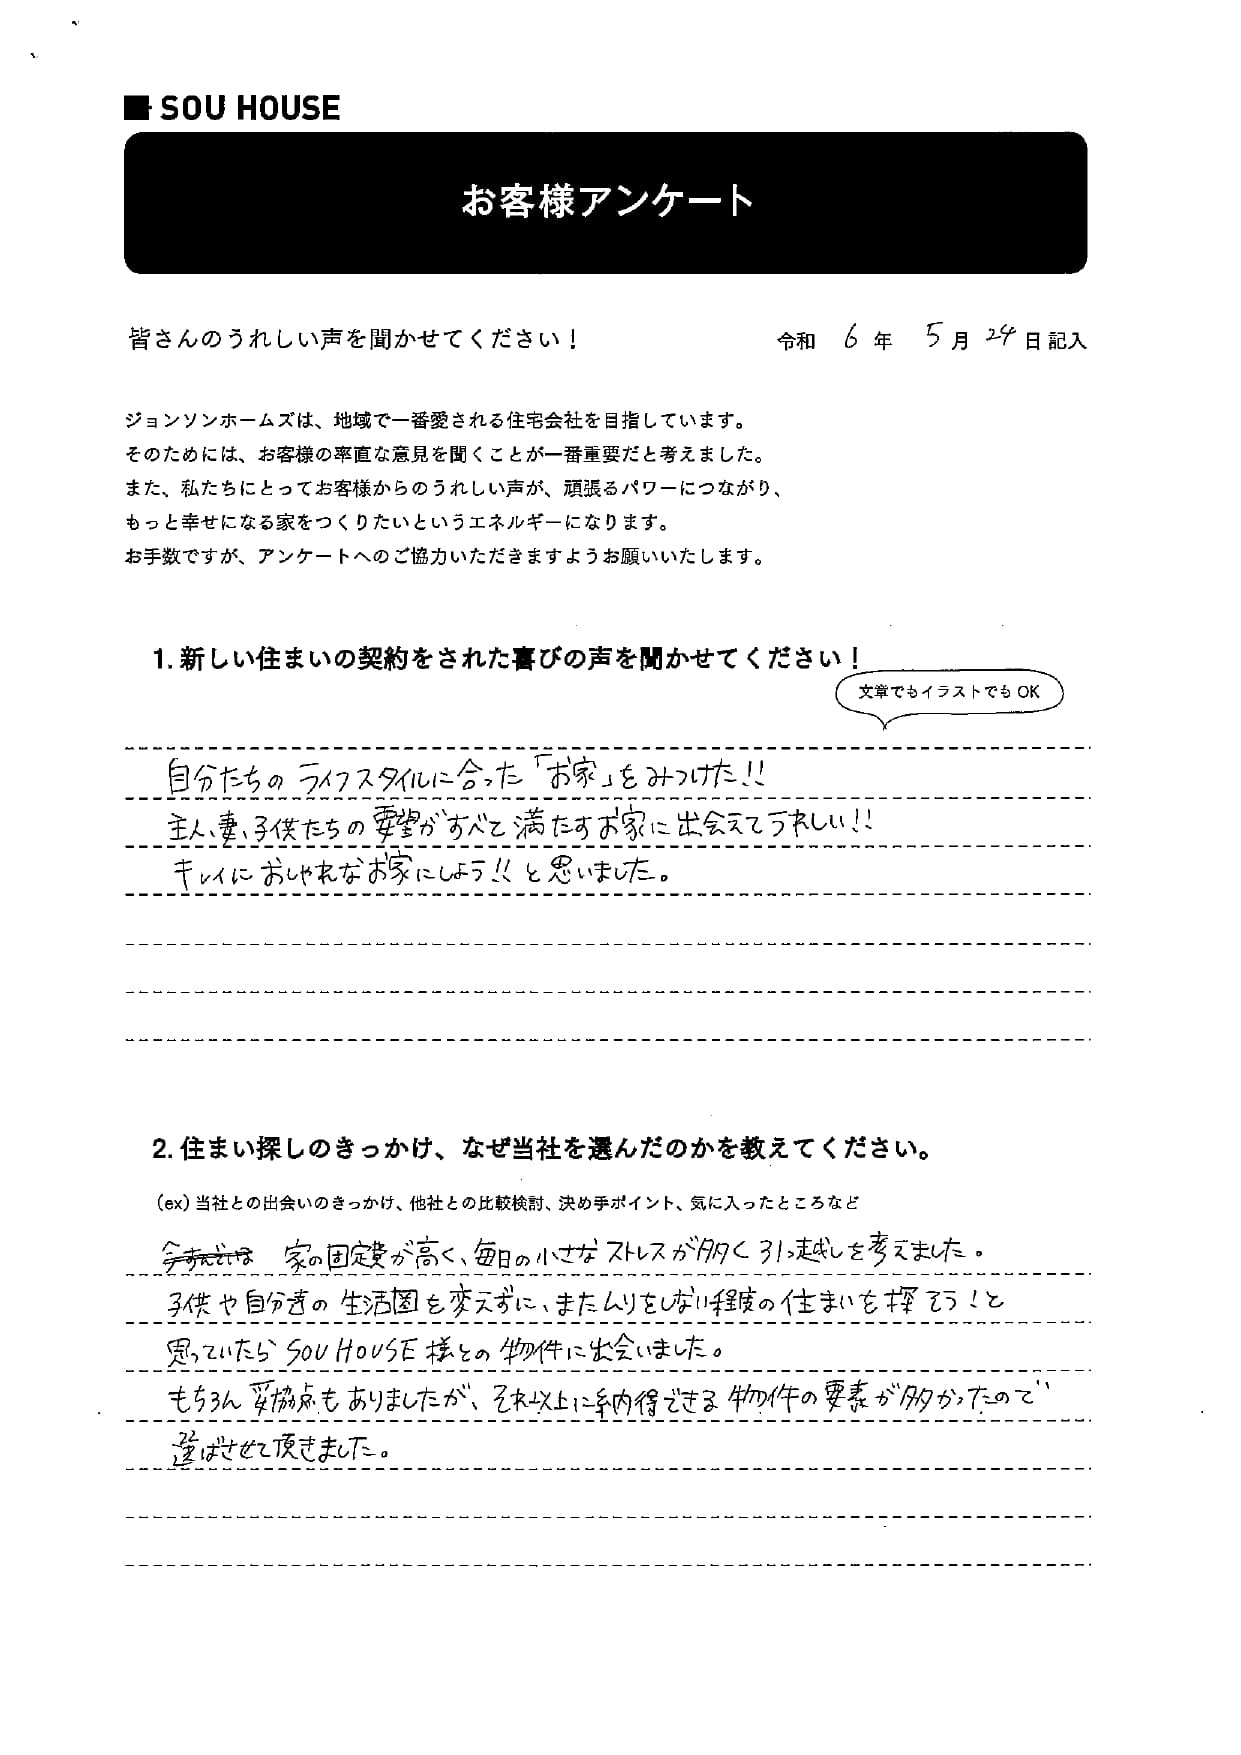 SOU HOUSE
お客様アンケート
皆さんのうれしい声を聞かせてください！
令和 6 年 5 月 24 日 記入
ジョンソンホームズは、地域で一番愛される住宅会社を目指しています。
そのためには、お客様の率直な意見を聞くことが一番重要だと考えました。
また、私たちにとってお客様からのうれしい声が、頑張るパワーにつながり、
もっと幸せになる家をつくりたいというエネルギーになります。
お手数ですが、アンケートへのご協力いただきますようお願いいたします。
1. 新しい住まいの契約をされた喜びの声を聞かせてください！
文章でもイラストでも OK
自分たちの ライフスタイルに合った「お家」をみつけた!!
主人、妻、子供たちの要望がすべて満たすお家に出会えてうれしい!!
キレイにおしゃれなお家にしよう!! と思いました。
2. 住まい探しのきっかけ、なぜ当社を選んだのかを教えてください。
（ex）当社との出会いのきっかけ、他社との比較検討、決め手ポイント、気に入ったところなど
家の固定費が高く、毎日の小さなストレスが多く引っ越しを考えました。
子供や自分達の生活圏を変えずに、またムリをしない程度の住まいを探そう！と
思っていたら SOU HOUSE 様との物件に出会いました。
もちろん 妥協点もありましたが、それ以上に納得できる物件の要素が多かったので
選ばさせて頂きました。